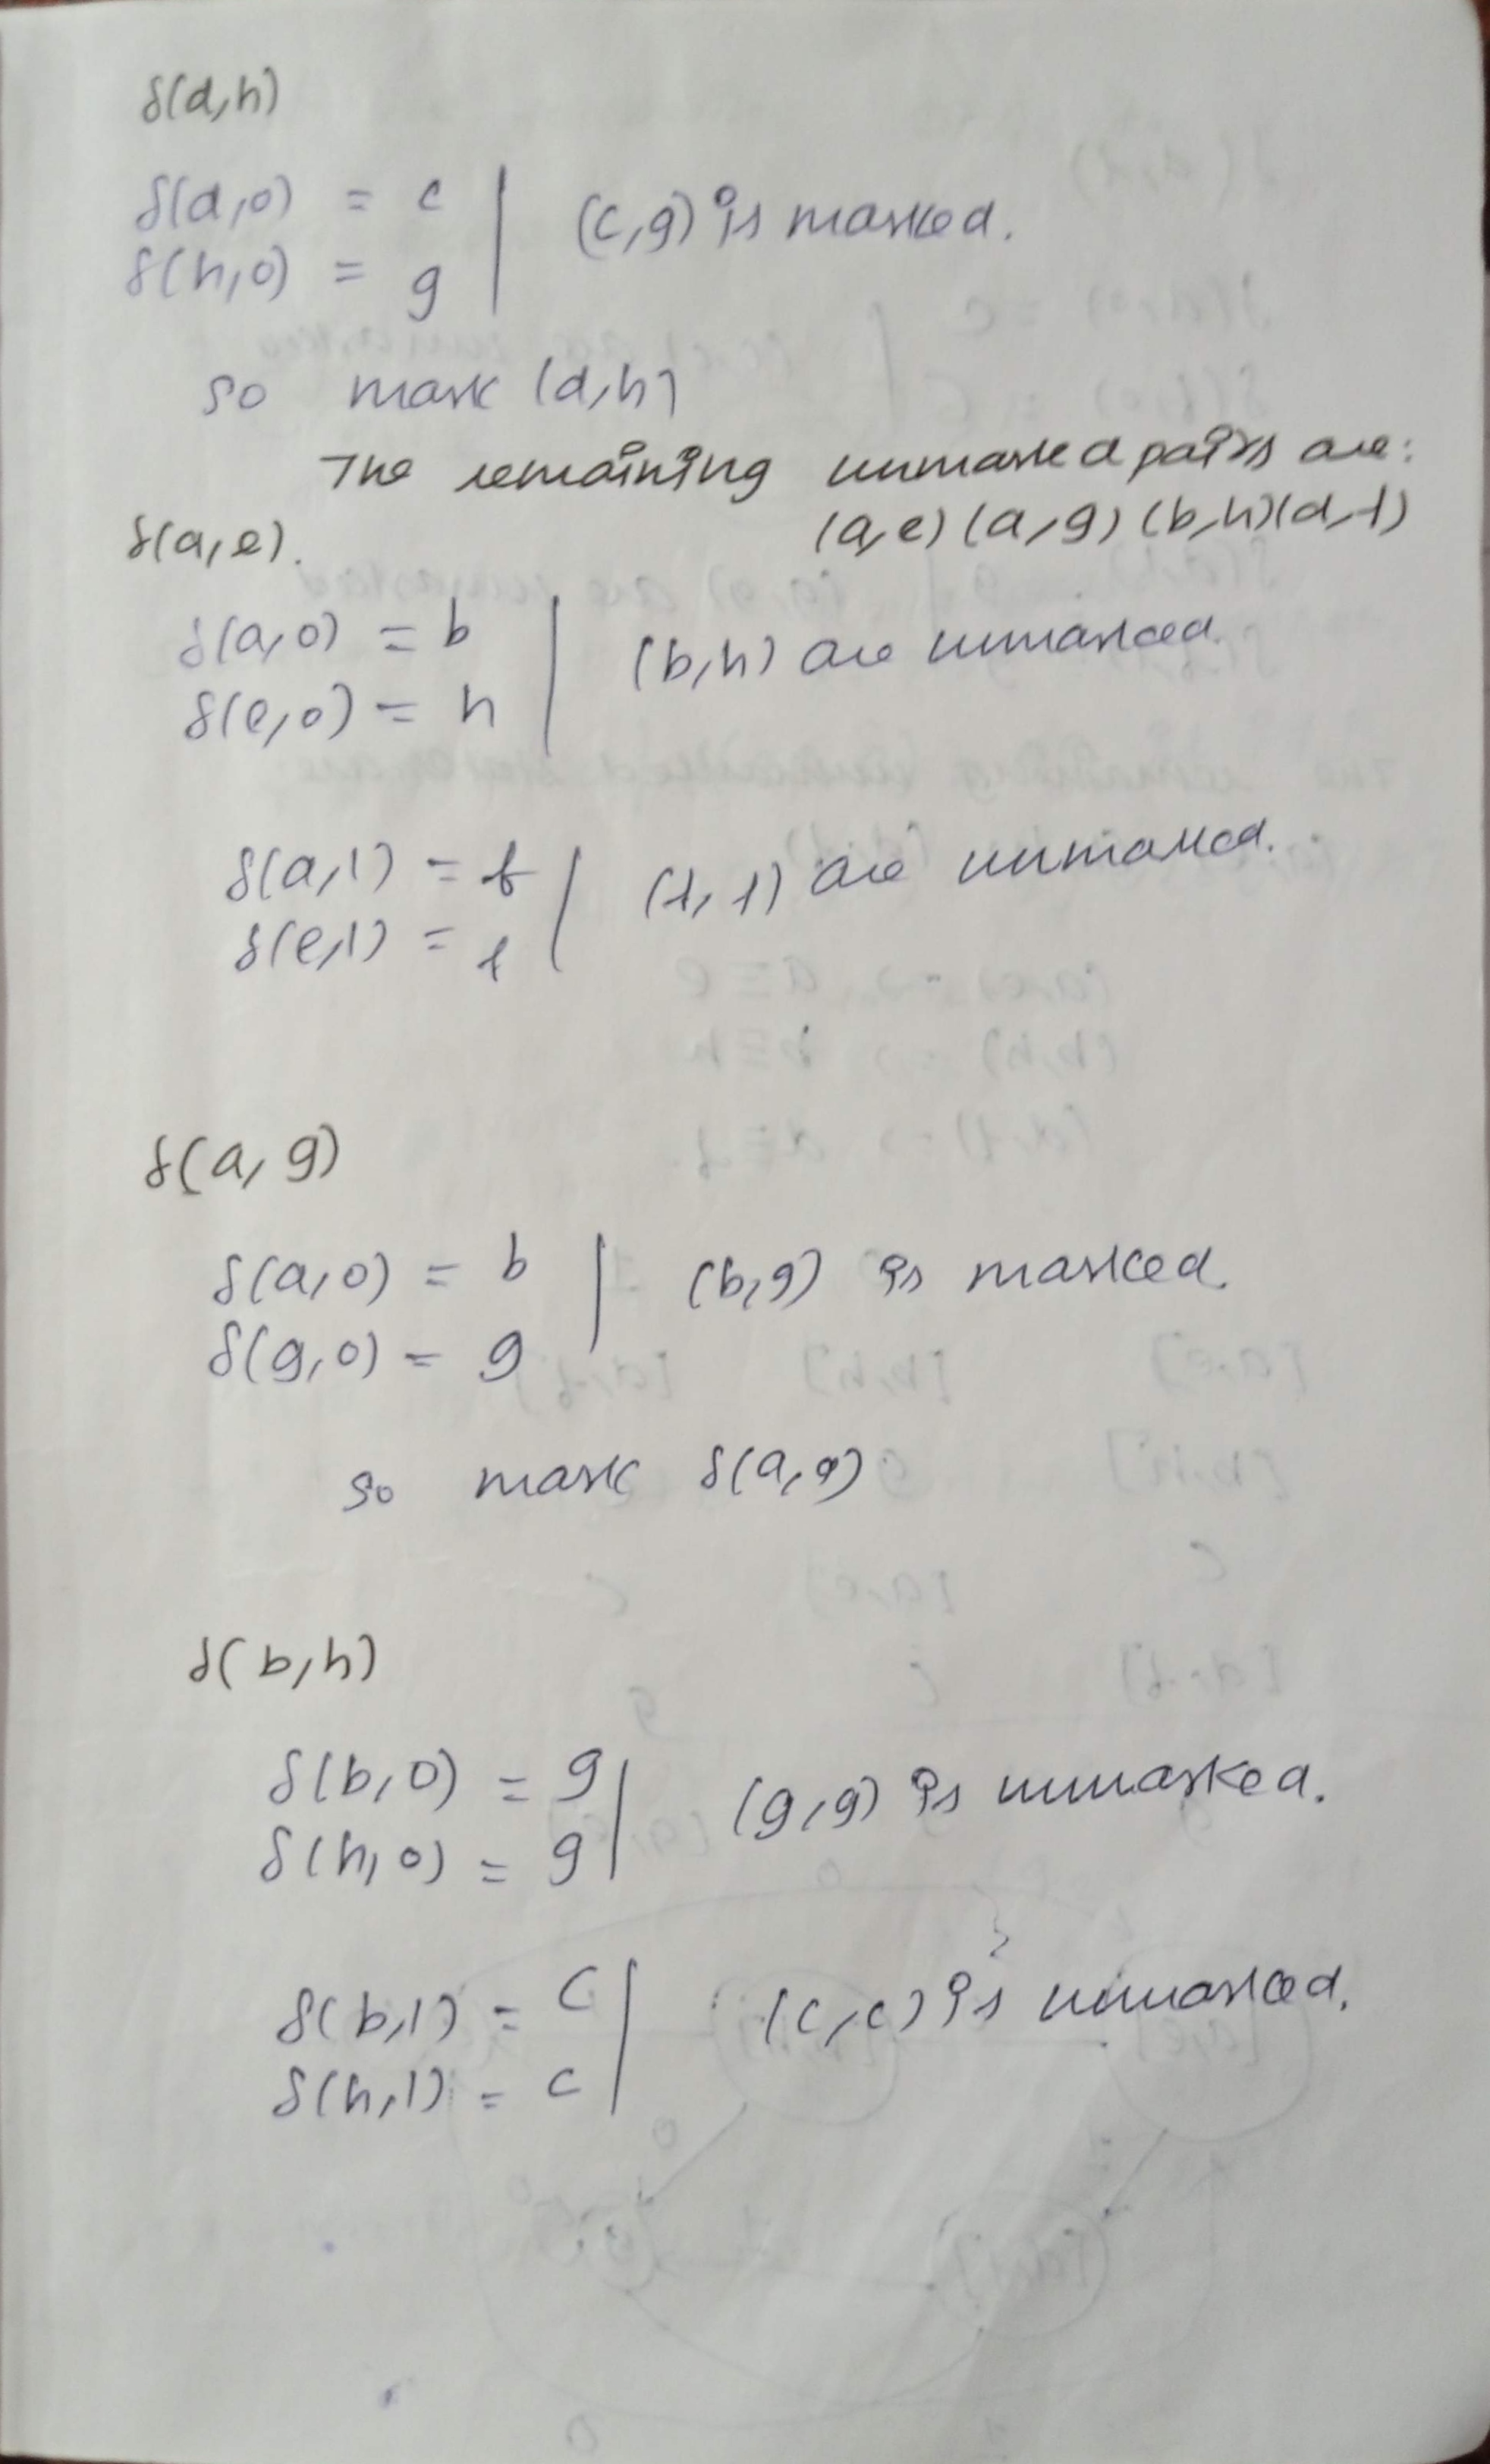 δ(d,h)
δ(d,0) = c
(c,g) is marked.
δ(h,0) = g
so mark (d,h)
The remaining unmarked pairs are:
(a,e) (a,g) (b,h)(d,f)
δ(a,e).
δ(a,0) = b
(b,h) are unmarked.
δ(e,0) = h
δ(a,1) = f
(f,f) are unmarked.
δ(e,1) = f
δ(a,g)
δ(a,0) = b
(b,g) is marked.
δ(g,0) = g
so mark δ(a,g)
δ(b,h)
δ(b,0) = g
(g,g) is unmarked.
δ(h,0) = g
δ(b,1) = c
(c,c) is unmarked.
δ(h,1) = c